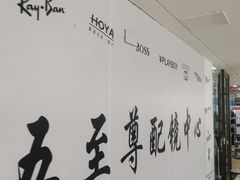 Ray-Ban HOYA BOSS PLAYBOY
五至尊配镜中心